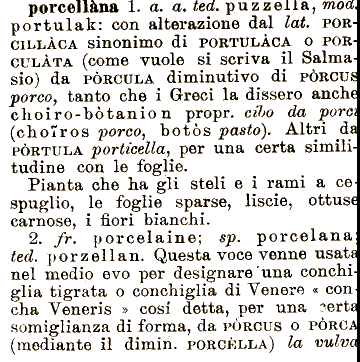 porcellàna 1. a. a. ted. puzzella, mod.
portulak: con alterazione dal lat. POR-
CILLÀCA sinonimo di PORTULÀCA o POR-
CULÀTA (come vuole si scriva il Salma-
sio) da PÒRCULA diminutivo di PÒRCUS
porco, tanto che i Greci la dissero anche
choiro-bòtanion propr. cibo da porci
(choîros porco, botòs pasto). Altri da
PÒRTULA porticella, per una certa simili-
tudine con le foglie.
Pianta che ha gli steli e i rami a ce-
spuglio, le foglie sparse, liscie, ottuse
carnose, i fiori bianchi.
2. fr. porcelaine; sp. porcelana;
ted. porzellan. Questa voce venne usata
nel medio evo per designare una conchi-
glia tigrata o conchiglia di Venere « con-
cha Veneris » cosí detta, per una certa
somiglianza di forma, da PÒRCUS o PÒRCA
(mediante il dimin. PORCÈLLA) la vulva